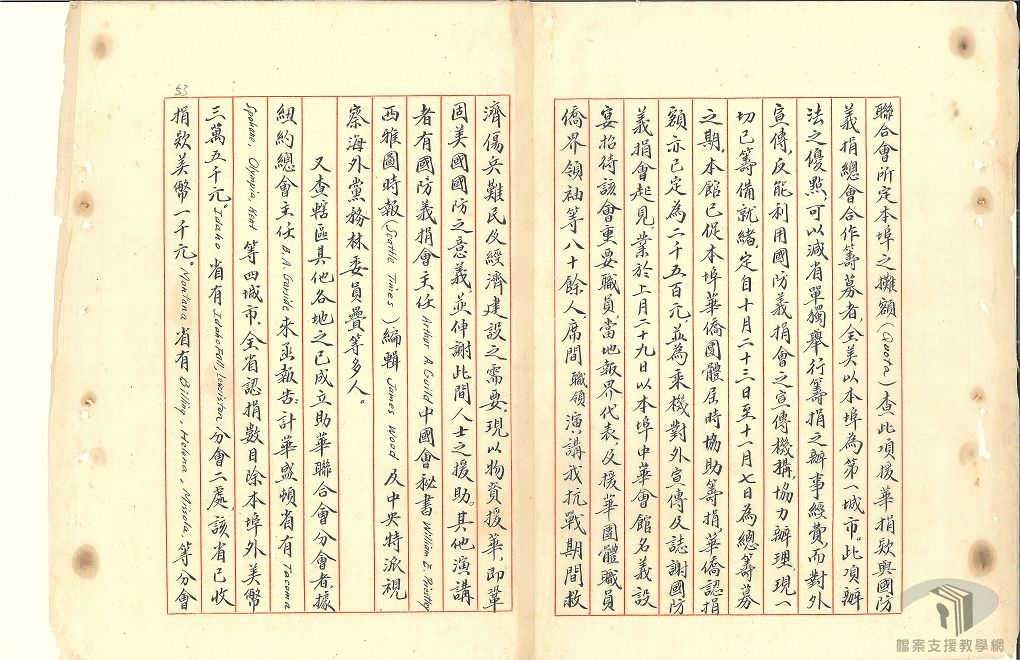 聯合會所定本埠之攤額(Quota)查此項援華捐款與國防
義捐總會合作籌募者,全美以本埠為第一城市。此項辦
法之優點,可以減省單獨舉行籌捐之辦事經費,而對外
宣傳,反能利用國防義捐會之宣傳機搆,協力辦理,現一
切已籌備就緒,定自十月二十三日至十一月七日為總籌募
之期,本館已促本埠華僑團體屆時協助籌捐,華僑認捐
額亦已定為二千五百元,並為乘機對外宣傳及誌謝國防
義捐會起見,業於上月二十九日以本埠中華會館名義設
宴招待該會重要職員,當地報界代表,及援華團體職員
僑界領袖等八十餘人,席間職領演講我抗戰期間救
濟傷兵難民及經濟建設之需要,現以物資援華,即鞏
固美國國防之意義,並伸謝此間人士之援助。其他演講
者有國防義捐會主任Arthur A. Guild中國會秘書William E. Priestley
西雅圖時報(Seattle Times)編輯James Wood及中央特派視
察海外黨務林委員疊等多人。
又查轄區其他各地之已成立助華聯合會分會者,據
紐約總會主任B.A. Garside來函報告,計華盛頓省有Tacoma
Spokane, Olympia, Kent等四城市,全省認捐數目除本埠外美幣
三萬五千元。Idaho省有Idaho Fall, Lewiston分會二處,該省已收
捐款美幣一千元。Montana省有Billing, Helena, Missola等分會
53
檔案支援教學網